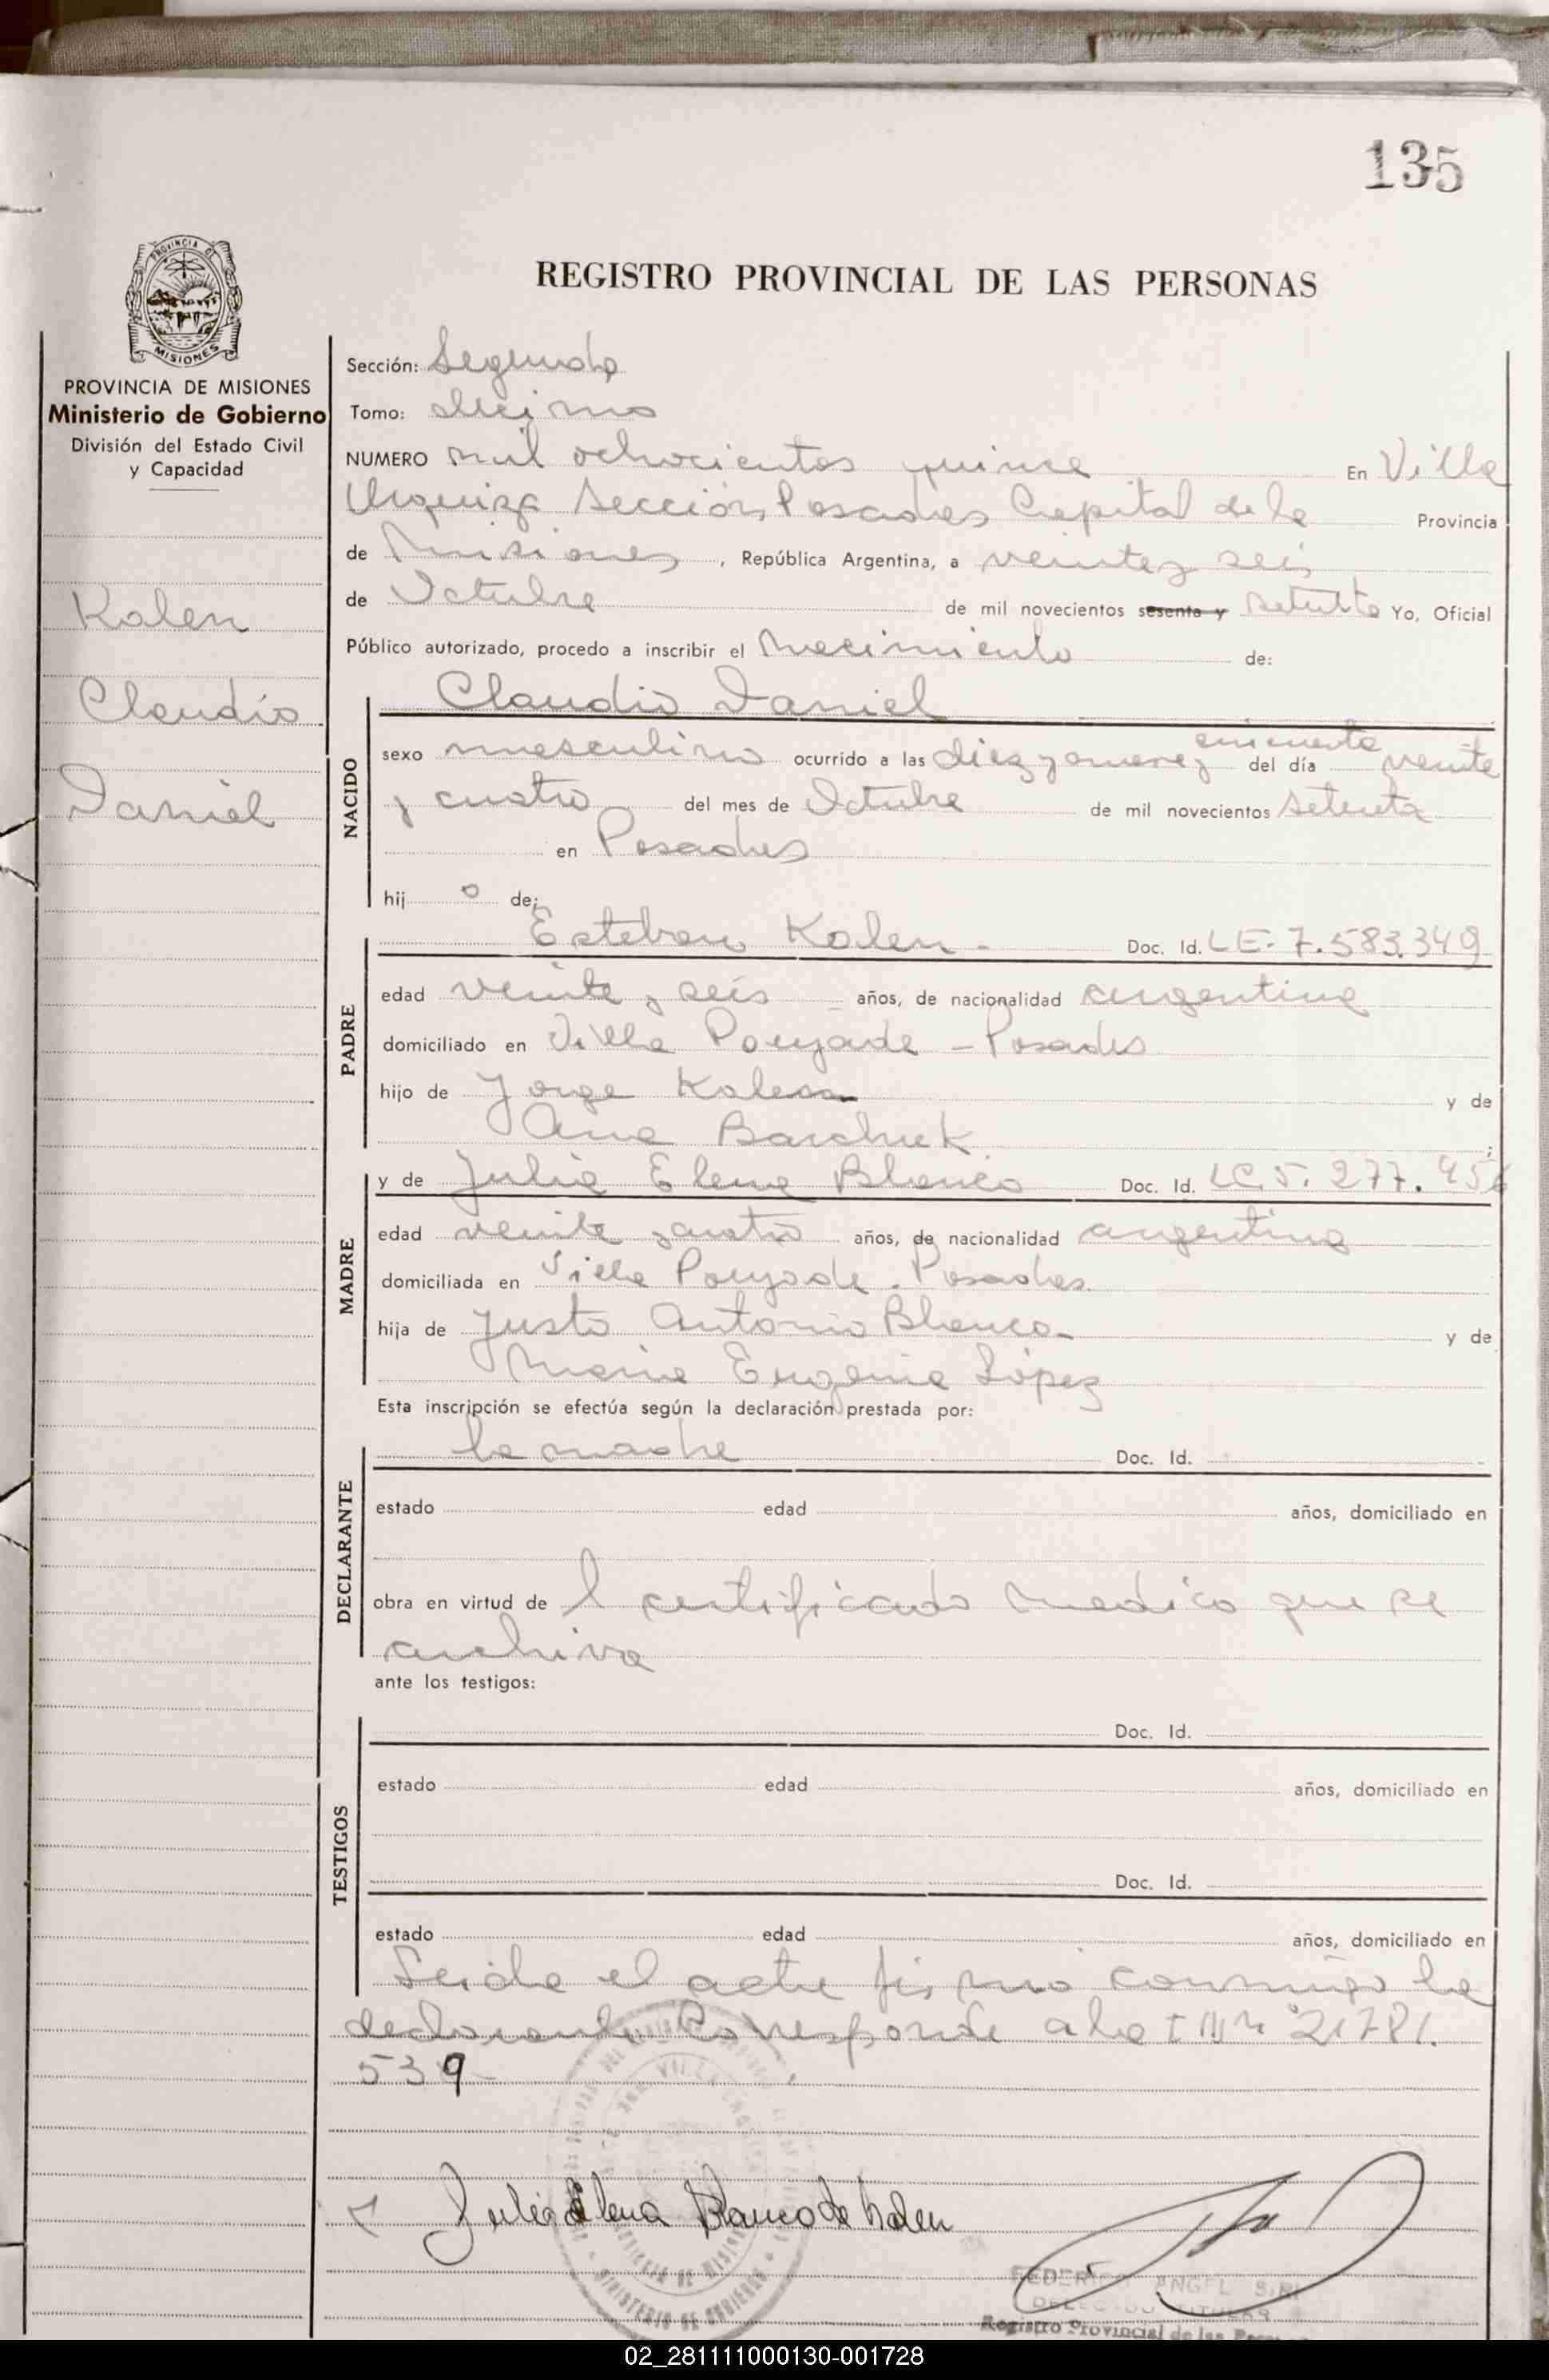 135
PROVINCIA DE
MISIONES
PROVINCIA DE MISIONES
Ministerio de Gobierno
División del Estado Civil
y Capacidad
Kolen
Claudio
Daniel
REGISTRO PROVINCIAL DE LAS PERSONAS
Sección: Segunda
Tomo: decimo
NUMERO mil ochocientos quince En Villa
Urquiza Sección Posadas Capital de la Provincia
de Misiones, República Argentina, a veinte y seis
de Octubre de mil novecientos sesenta y setenta Yo, Oficial
Público autorizado, procedo a inscribir el nacimiento de:
Claudio Daniel
NACIDO
cincuenta
sexo masculino ocurrido a las diez y nueve y del día veinte
y cuatro del mes de Octubre de mil novecientos setenta
en Posadas
hij o de:
PADRE
Esteban Kolen - Doc. Id. LE. 7.583.349
edad veinte y seis años, de nacionalidad argentina
domiciliado en Villa Poujade - Posadas
hijo de Jorge Kolen y de
Ana Barchuk ;
MADRE
y de Julia Elena Blanco Doc. Id. LC. 5.277.456
edad veinte y cuatro años, de nacionalidad argentina
domiciliada en Villa Poujade - Posadas.
hija de Justo Antonio Blanco - y de
Maria Eugenia López
Esta inscripción se efectúa según la declaración prestada por:
DECLARANTE
la madre Doc. Id.
estado edad años, domiciliado en
obra en virtud de l certificado medico que se
archiva
ante los testigos:
TESTIGOS
Doc. Id.
estado edad años, domiciliado en
Doc. Id.
estado edad años, domiciliado en
Leida el acta firmó conmigo la
declarante Corresponde a la I Nº 21781.
539
Julia Elena Blanco de Kolen
ANGEL
Registro Provincial de las
MINISTERIO DE GOBIERNO
02_281111000130-001728